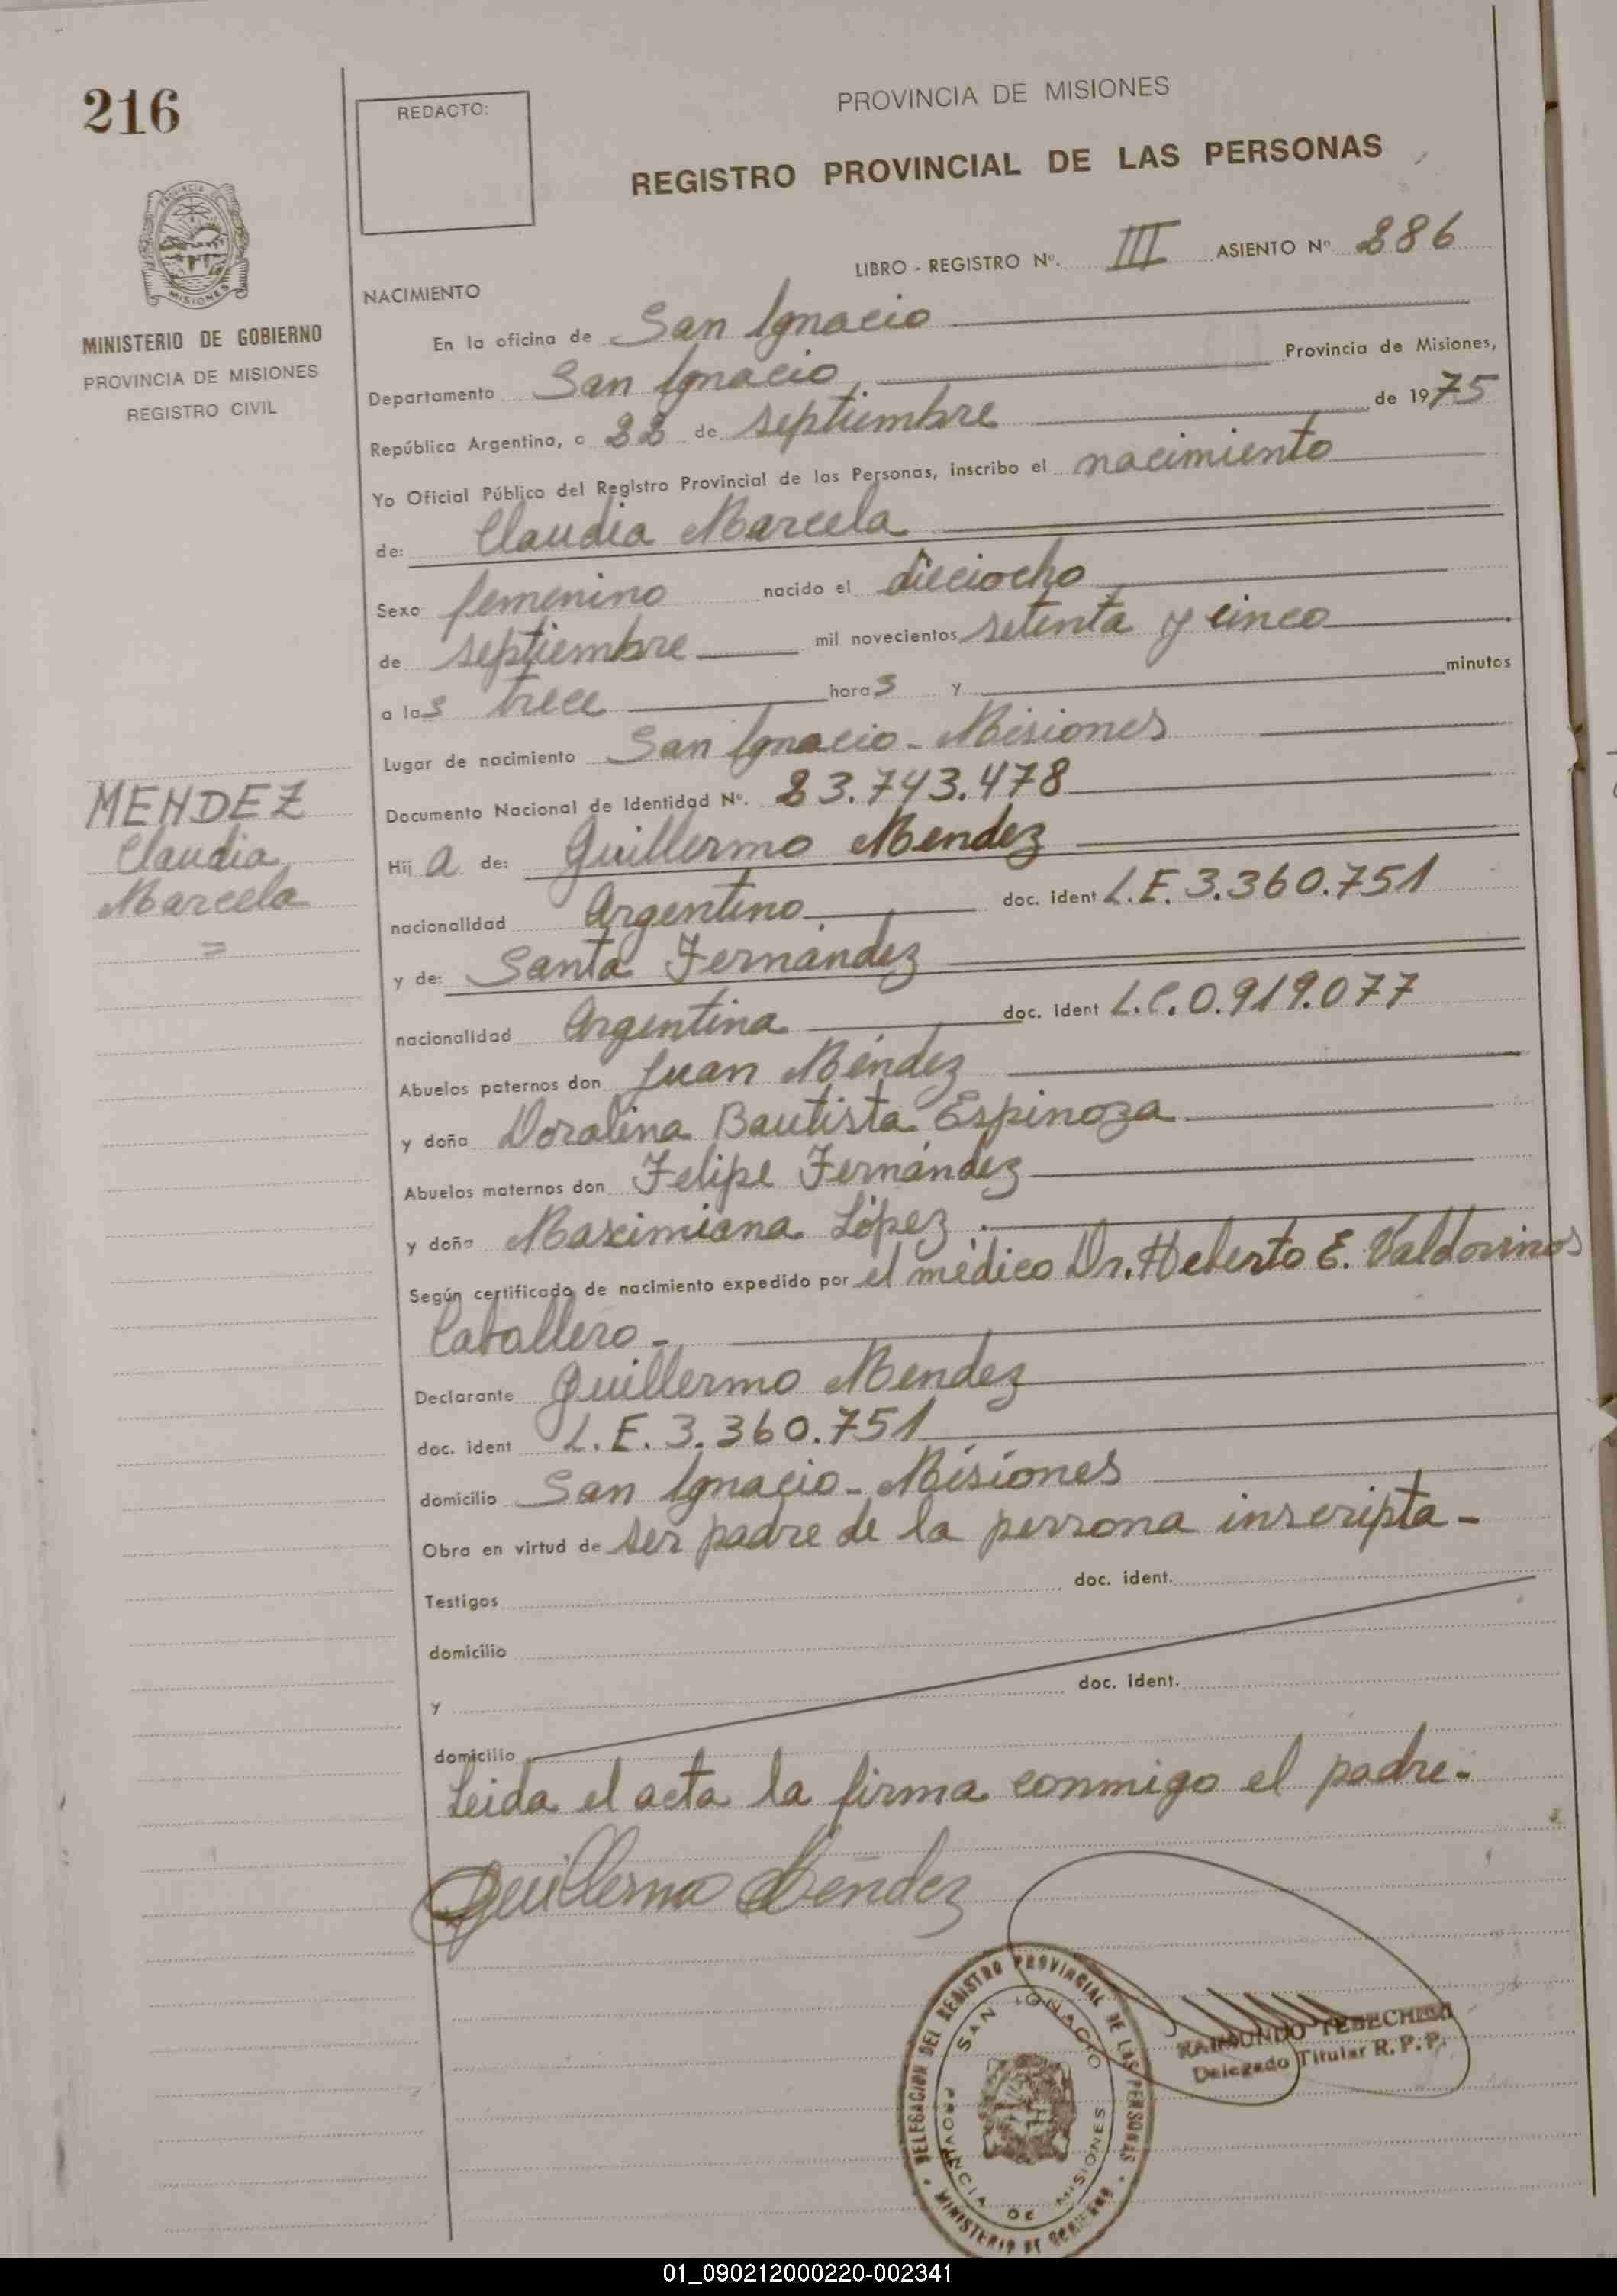 216
REDACTO:
PROVINCIA DE MISIONES
REGISTRO PROVINCIAL DE LAS PERSONAS
LIBRO - REGISTRO Nº. III ASIENTO Nº 286
MISIONES
MINISTERIO DE GOBIERNO
PROVINCIA DE MISIONES
REGISTRO CIVIL
NACIMIENTO
En la oficina de San Ignacio
Departamento San Ignacio, Provincia de Misiones,
República Argentina, a 22 de septiembre de 1975
Yo Oficial Público del Registro Provincial de las Personas, inscribo el nacimiento
de: Claudia Marcela
Sexo femenino nacido el dieciocho
de septiembre mil novecientos setenta y cinco
a las trece horas y minutos
Lugar de nacimiento San Ignacio - Misiones
Documento Nacional de Identidad Nº. 23.743.478
MENDEZ
Claudia
Marcela
=
Hija de: Guillermo Mendez
nacionalidad Argentino doc. ident L.E. 3.360.751
y de: Santa Fernández
nacionalidad Argentina doc. ident L.C. 0.919.077
Abuelos paternos don Juan Méndez
y doña Doralina Bautista Espinoza
Abuelos maternos don Felipe Fernández
y doña Maximiana López.
Según certificado de nacimiento expedido por el médico Dr. Heberto E. Valdovinos
Caballero -
Declarante Guillermo Mendez
doc. ident L.E. 3.360.751
domicilio San Ignacio - Misiones
Obra en virtud de ser padre de la persona inscripta -
Testigos doc. ident.
domicilio
y doc. ident.
domicilio
Leida el acta la firma conmigo el padre.-
Guillermo Méndez
DELEGACION DEL REGISTRO PROVINCIAL DE LAS PERSONAS
SAN IGNACIO
PROVINCIA DE MISIONES
MINISTERIO DE GOBIERNO
RAIMUNDO
Delegado Titular R.P.P.
01_090212000220-002341